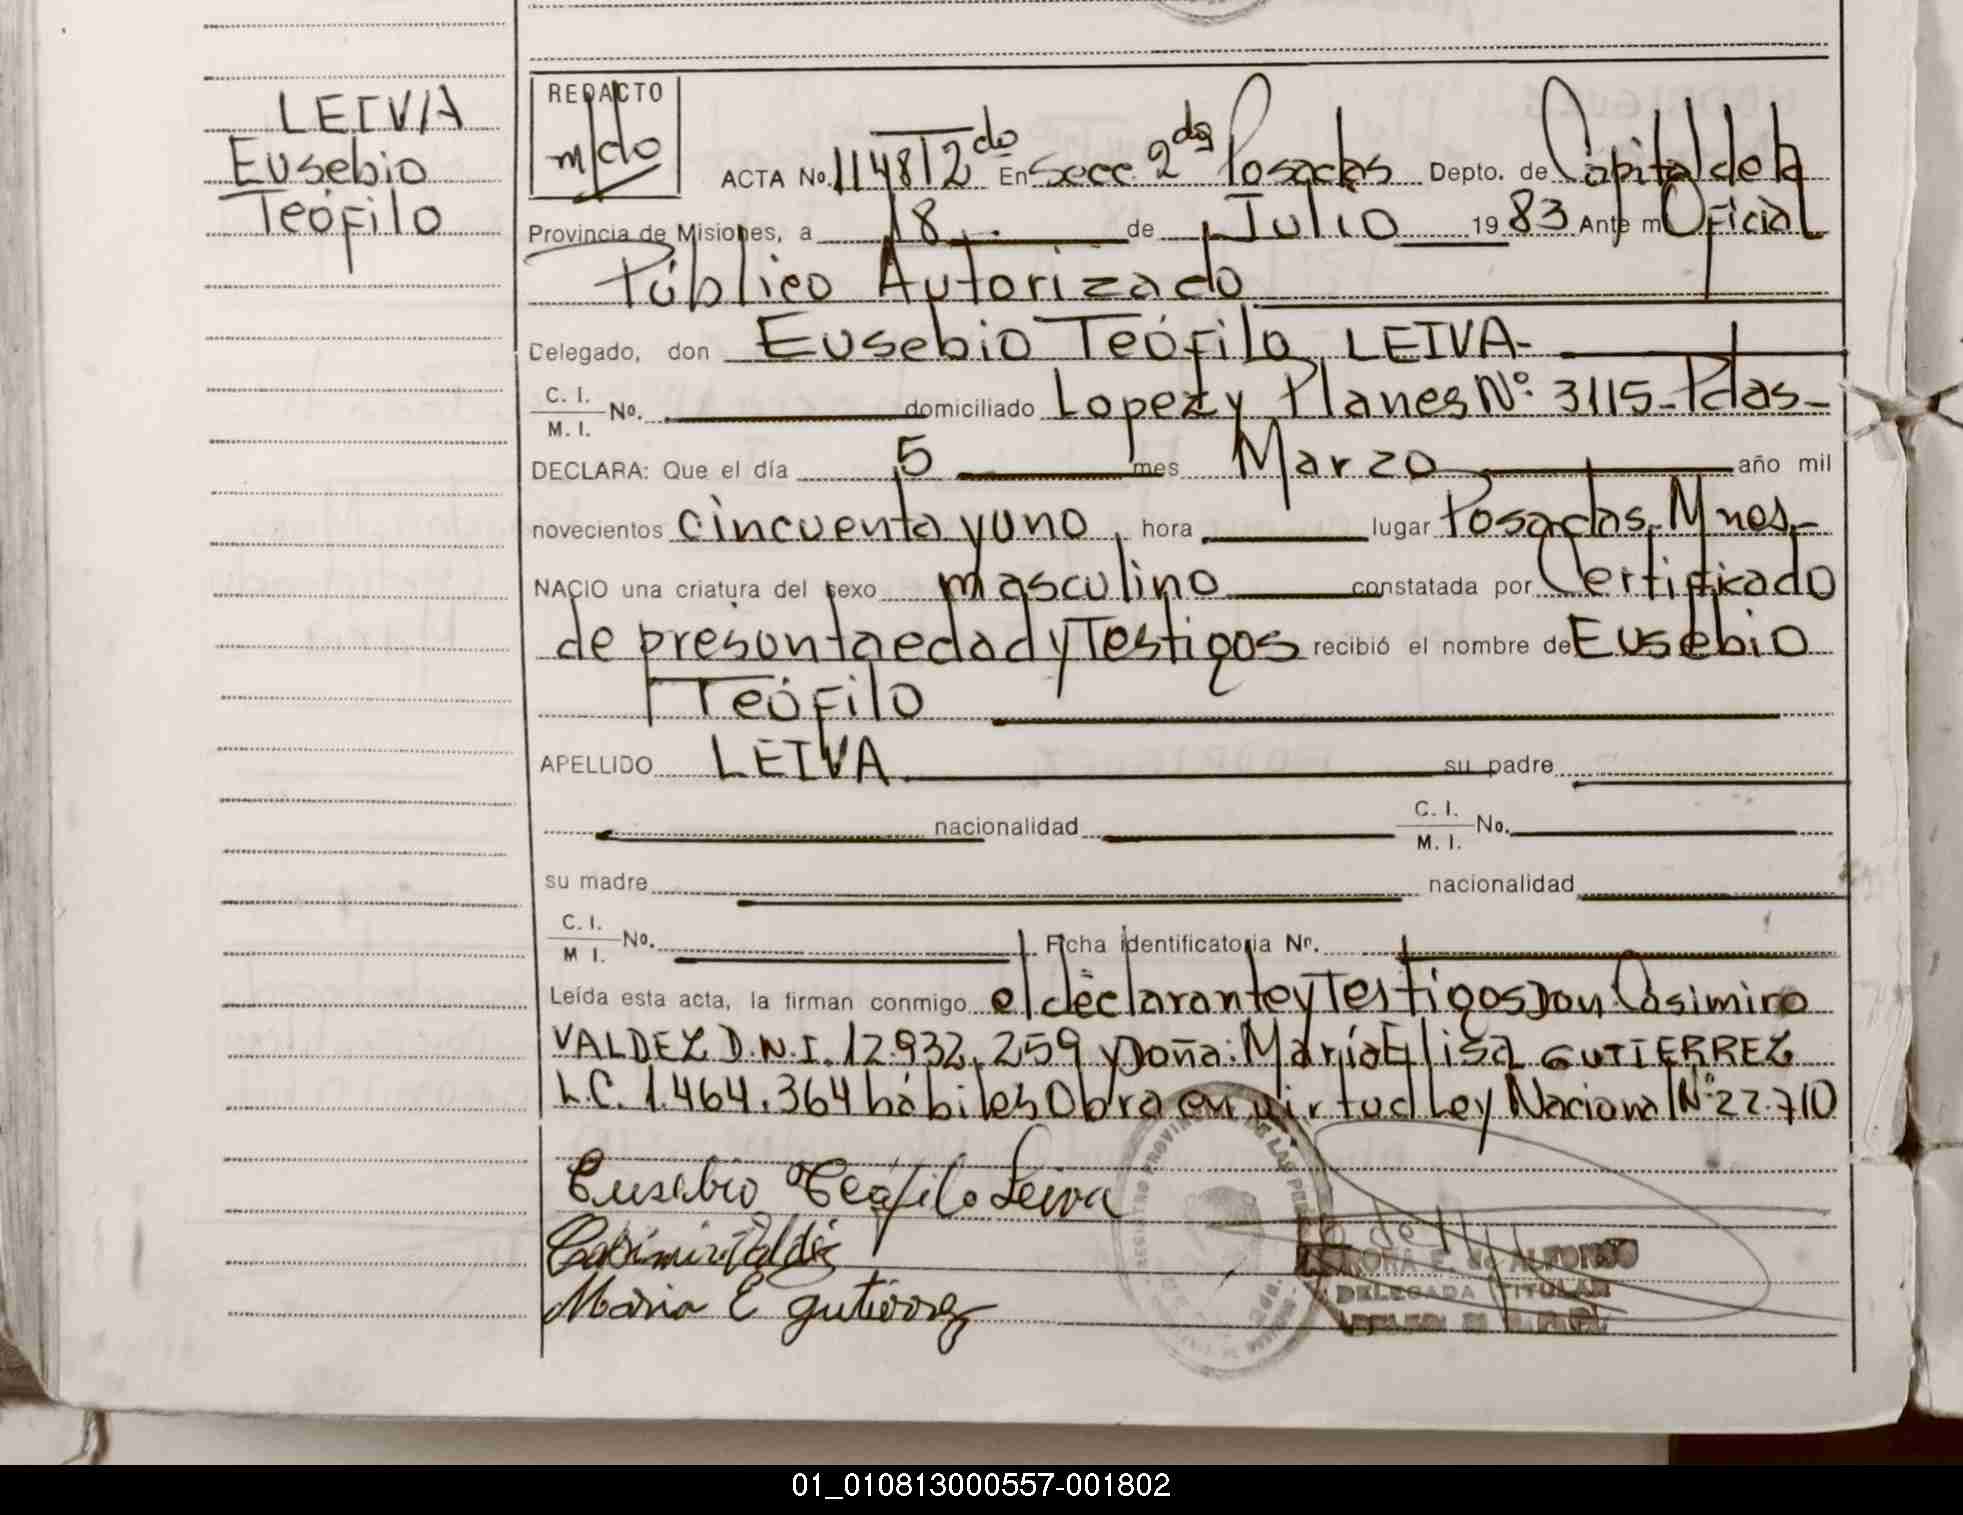 LEIVA
Eusebio
Teófilo
REDACTO
mldo
ACTA No. 1148 T 2do En Secc. 2da Posadas Depto. de Capital de la
Provincia de Misiones, a 18 de Julio 1983 Ante mí Oficial
Público Autorizado
Delegado, don Eusebio Teófilo LEIVA-
C. I.
M. I. No. domiciliado Lopez y Planes Nº: 3115-Pdas-
DECLARA: Que el día 5 mes Marzo año mil
novecientos cincuenta y uno, hora lugar Posadas, Mnes,-
NACIO una criatura del sexo masculino constatada por Certificado
de presunta edad y Testigos recibió el nombre de Eusebio
Teófilo
APELLIDO LEIVA su padre
nacionalidad C. I.
M. I. No.
su madre nacionalidad
C. I.
M I. No. Ficha identificatoria Nr.
Leída esta acta, la firman conmigo el declarante y Testigos Don, Casimiro
VALDEZ D.N.I. 12.932.259 y Doña: María Elisa GUTIERREZ
L.C. 1.464.364 hábiles Obra en virtud Ley Nacional Nº 22.710
Eusebio Teófilo Leiva
Casimiro Valdéz
Maria E gutierrez
REGISTRO PROVINCIAL DE LAS
E. de ALFONSO
DELEGADA TITULAR
01_010813000557-001802